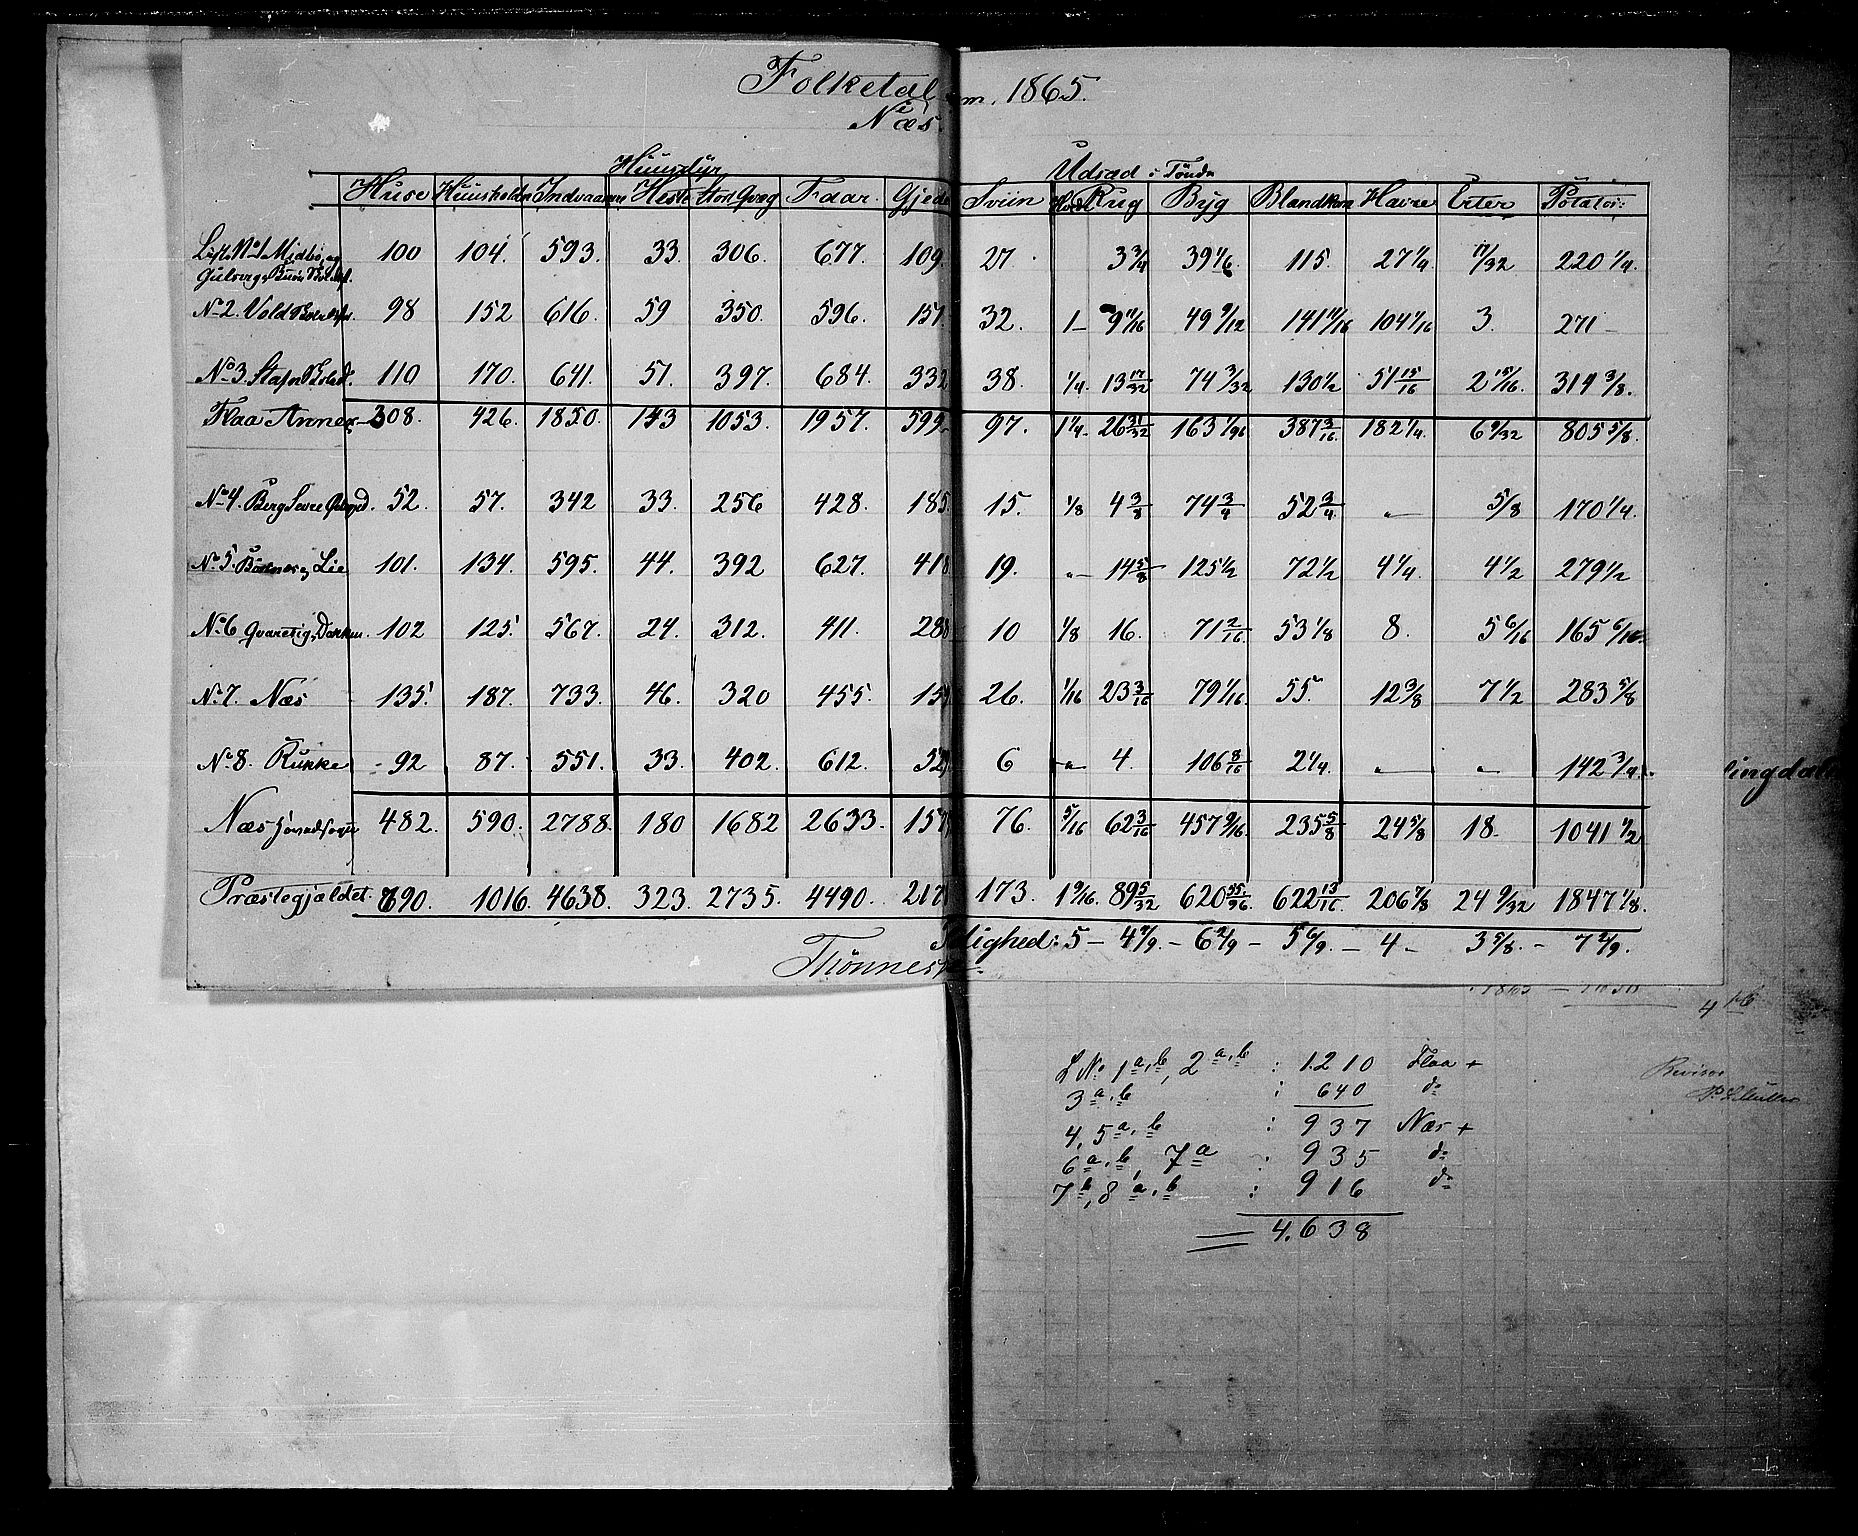 Folketal m. 1865.
i
Næs.
Huusdyr Udsæd i Tönder
Huse Huusholdn Indvaanere Heste Stort Qvæg Faar. Gjeder Sviin Hvede Rug Byg Blandkorn Havre Erter Potatos:
List No 1 Midbö og 100 104. 593. 33. 306. 677. 109. 27 3 3/4 39 1/6. 115. 27 1/4. 17/32 220 1/4.
Gulsvig
No 2. Vold 98 152 616. 59 350. 596. 157. 32. 1 – 9 11/16 49 9/12 141 11/16 104 1/16 3. 271 –
No 3. Stafn 110 170. 641. 51. 397. 684. 332 38. 1/4. 13 17/32 74 3/32 130 1/2 51 15/16 2 15/16. 314 3/8.
Flaa Annex – 308. 426. 1850. 143 1053. 1957. 599. 97. 1 1/4. 26 31/32 163 1/96 387 3/16. 182 1/4. 6 9/32 805 5/8.
No 4. Berg 52. 57. 342 33. 256 428. 185. 15. 1/8 4 3/8 74 3/4 52 3/4 „ – 5/8 170 1/4.
No 5. Börtnes og Lie 101. 134. 595. 44. 392 627. 418 19. „ – 14 5/8 125 1/2 72 1/2 4 1/4. 4 1/2 279 1/2
No 6 102 125. 567. 24. 312. 411. 288 10 1/8 16. 71 2/16 53 1/8 8. 5 6/16 165 6/16.
No 7. Næs 135. 187. 733. 46. 320 455. 15 26. 1/16 23 3/16 79 1/16. 55. 12 3/8 7 1/2 283 5/8
No 8. Rukke 92 87. 551. 33. 402. 612. 52 6 – „ – 4. 106 8/16 2 1/4. „ – „ 142 3/4.
Næs Hovedsogn 482. 590. 2788. 180 1682 2633. 157 76. 5/16 62 3/16 457 9/16. 235 5/8 24 5/8 18. 1041 1/2
Præstegjældet. 790. 1016. 4638. 323. 2735. 4490. 217 173. 1 9/16. 89 5/32 620 55/96. 622 13/16. 206 7/8 24 9/32 1847 1/8.
5 – 4 7/9. – 6 2/9 – 5 6/9. – 4 – 3 5/8. – 7 2/9.
Tönnes
ingdal
1865
L No 1 a,b, 2 a,b : 1.210 Flaa +
3 a,b : 640 do
4, 5 a,b : 937 Næs +
6 a,b, 7 a : 935 do
7 b, 8 a,b : 916 do
4.638
Revisor